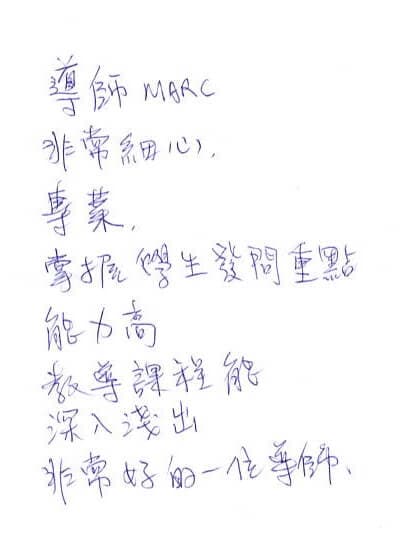 導師 MARC
非常細心,
專業,
掌握學生發問重點
能力高
教導課程能
深入淺出
非常好的一位導師、